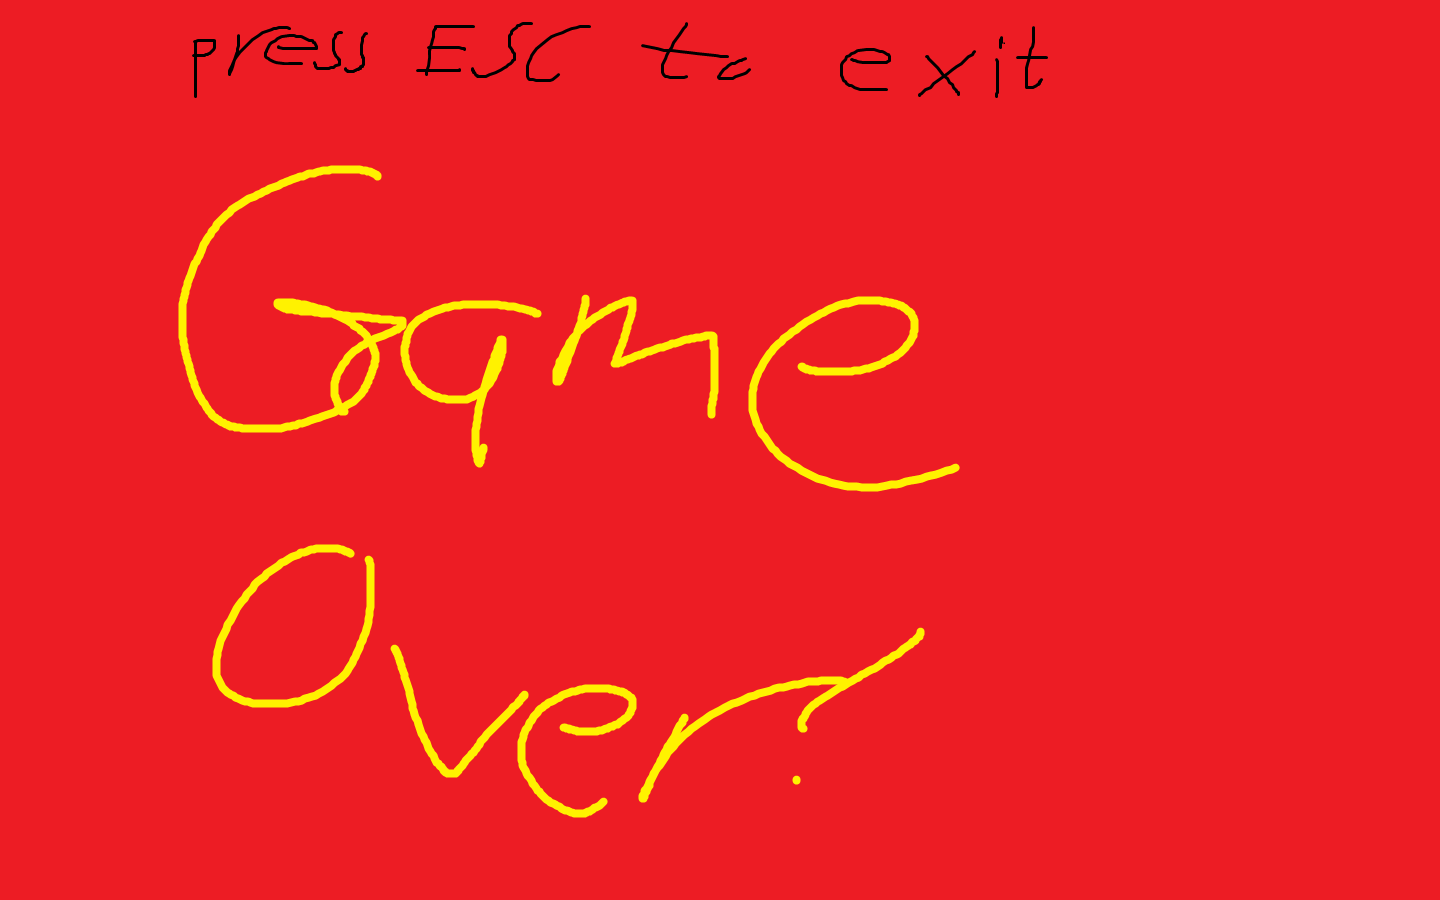 press ESC to exit
Game
Over!